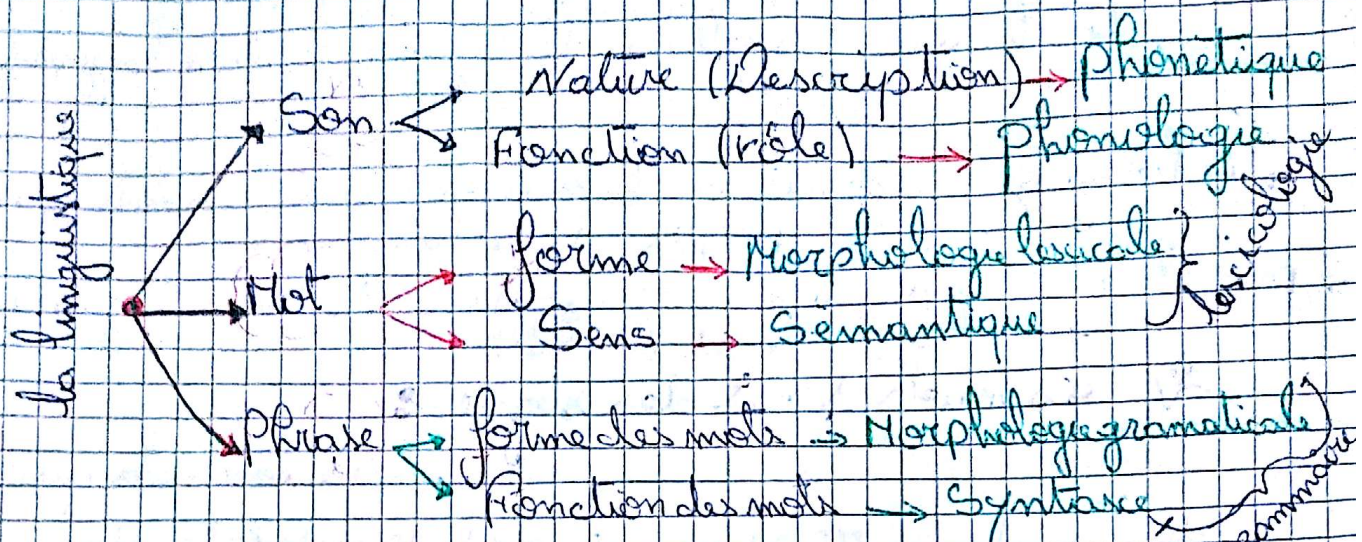 la linguistique
Son
Nature (Description) → Phonétique
Fonction (rôle) → Phonologie
Mot
forme → Morphologie lexicale
Sens → Sémantique
lexicologie
Phrase
forme des mots → Morphologie gramaticale
Fonction des mots → Syntaxe
grammaire